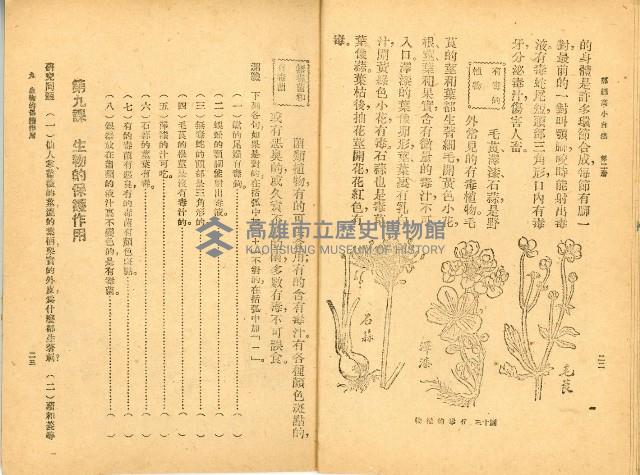 的身體是許多環節合成每節有腳一
對最前的一對叫顎腳咬時能射出毒
液有毒蛇尾短頭部三角形口內有毒
牙分泌毒汁傷害人畜。
有毒的
植物
毛茛澤漆石蒜是野
外常見的有毒植物毛
茛的莖和葉都生着細毛開黃色小花
根莖葉和果實含有微量的毒汁不可
入口澤漆的葉像卵形莖葉裏有乳汁
汁開黃綠色小花有毒石蒜也是毒草
葉像蒜葉枯後抽花莖開花花紅色有
毒。
毛茛
澤漆
石蒜
圖十三 有毒的植物
二二
有毒菌
菌類植物有的可
用有的含有毒汁有各種顏色斑點的,
或有惡臭的或久煮
多數有毒不可誤食。
測驗 下列各句如果是對的在括弧中
不對的在括弧中加「一」
(一) 蠍的尾端有毒鉤。( )
(二) 蜈蚣的顎腳能射出毒液。( )
(三) 無毒蛇的頭部是三角形的。( )
(四) 毛茛的根莖是沒有毒汁的。( )
(五) 澤漆的汁可吃。( )
(六) 石蒜的莖葉有毒。( )
(七) 有的毒菌有惡臭有的毒菌有顏色斑點。( )
(八) 銀器放在菌類的汁裏不變色的是有毒菌。( )
第九課 生物的保護作用
研究問題 (一) 仙人掌薔薇的莖
的外皮爲什麼都生着刺? (二)
九 生物的保護作用
二三
高雄市立歷史博物館
KAOHSIUNG MUSEUM OF HISTORY